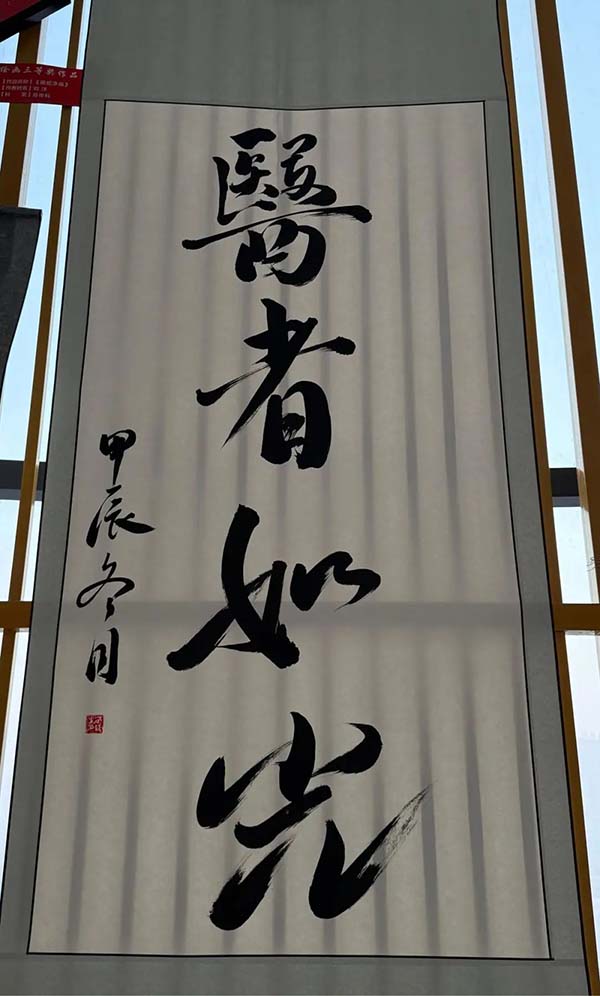 醫者如光
甲辰冬月
绘画三等奖作品